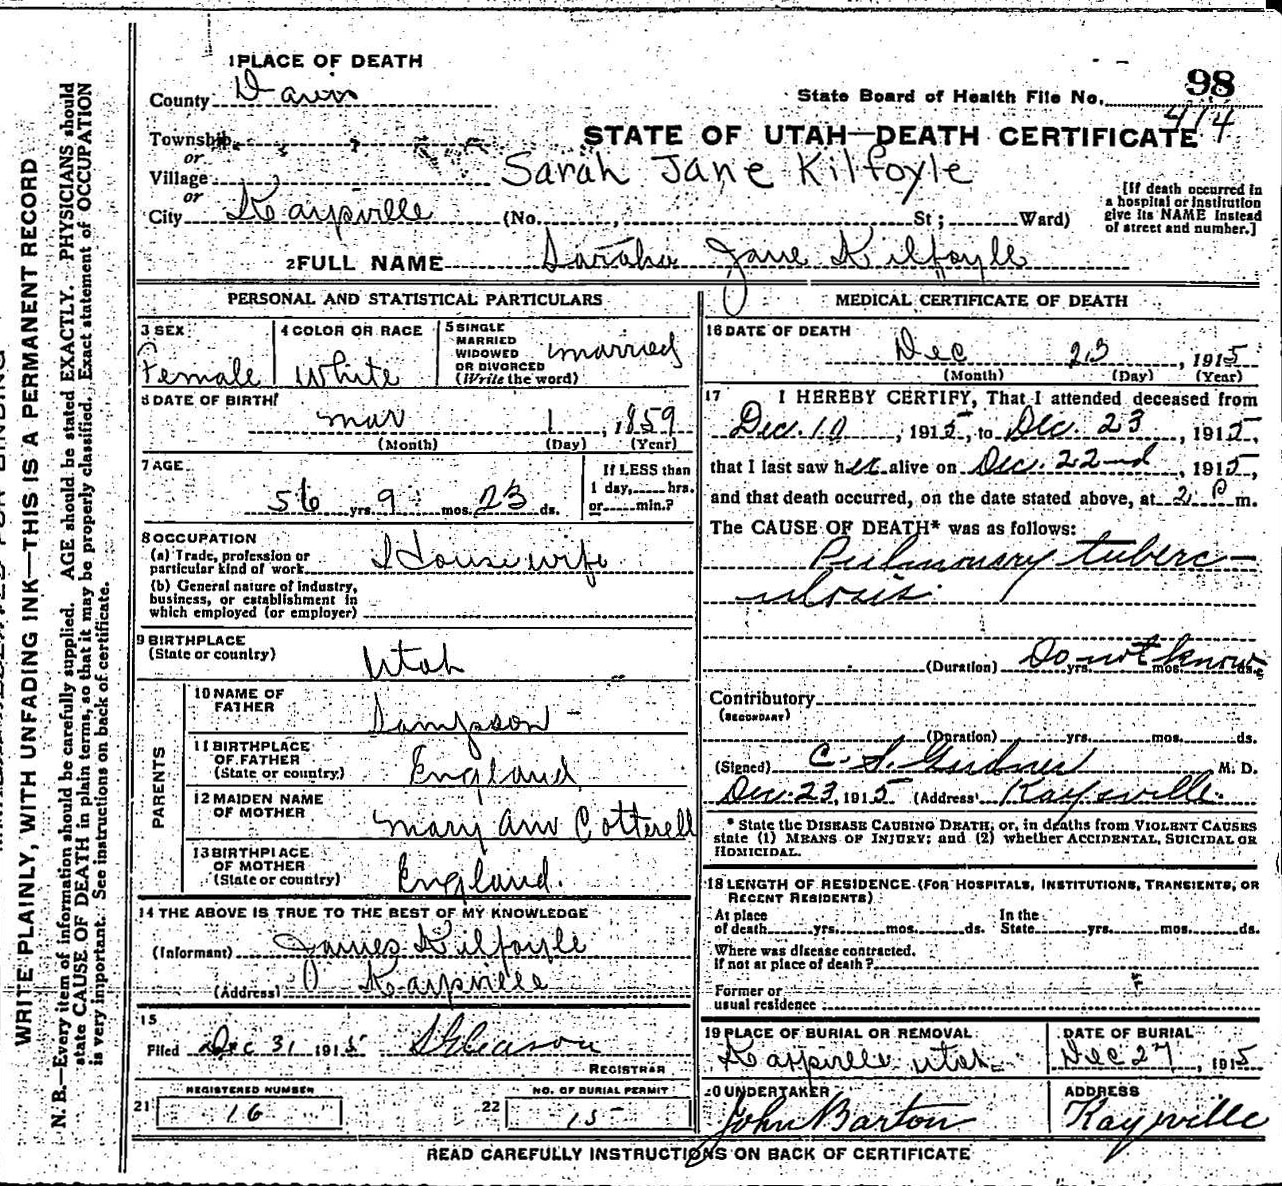 1 PLACE OF DEATH
County Davis
State Board of Health File No. 98
414
Township
or
Village
or
City Kaysville (No. St; Ward)
STATE OF UTAH—DEATH CERTIFICATE
Sarah Jane Kilfoyle
[If death occurred in
a hospital or institution
give its NAME instead
of street and number.]
2 FULL NAME Sarah Jane Kilfoyle
PERSONAL AND STATISTICAL PARTICULARS
3 SEX
Female
4 COLOR OR RACE
White
5 SINGLE
MARRIED
WIDOWED
OR DIVORCED
(Write the word)
married
6 DATE OF BIRTH
Mar 1, 1859
(Month) (Day) (Year)
7 AGE
56 yrs. 9 mos. 23 ds.
If LESS than
1 day, hrs.
or min.?
8 OCCUPATION
(a) Trade, profession or
particular kind of work Housewife
(b) General nature of industry,
business, or establishment in
which employed (or employer)
9 BIRTHPLACE
(State or country)
Utah
PARENTS
10 NAME OF
FATHER
Sampson
11 BIRTHPLACE
OF FATHER
(State or country)
England
12 MAIDEN NAME
OF MOTHER
Mary Ann Cotterell
13 BIRTHPLACE
OF MOTHER
(State or country)
England.
14 THE ABOVE IS TRUE TO THE BEST OF MY KNOWLEDGE
(Informant) James Kilfoyle
(Address) Kaysville
15
Filed Dec 31 1915 Gleason
REGISTRAR
REGISTERED NUMBER
21 16
NO. OF BURIAL PERMIT
22 15
MEDICAL CERTIFICATE OF DEATH
16 DATE OF DEATH
Dec 23, 1915
(Month) (Day) (Year)
17 I HEREBY CERTIFY, That I attended deceased from
Dec. 10, 1915, to Dec. 23, 1915,
that I last saw her alive on Dec. 22nd, 1915,
and that death occurred, on the date stated above, at 2 P m.
The CAUSE OF DEATH* was as follows:
Pulmonary tuberc-
ulosis.
(Duration) yrs. mos. ds.
Do not know
Contributory
(SECONDARY)
(Duration) yrs. mos. ds.
(Signed) C. S. Gardner M. D.
Dec. 23, 1915 (Address) Kaysville.
* State the DISEASE CAUSING DEATH, or, in deaths from VIOLENT CAUSES
state (1) MEANS OF INJURY; and (2) whether ACCIDENTAL, SUICIDAL OR
HOMICIDAL.
18 LENGTH OF RESIDENCE (FOR HOSPITALS, INSTITUTIONS, TRANSIENTS, OR
RECENT RESIDENTS)
At place
of death yrs. mos. ds.
In the
State yrs. mos. ds.
Where was disease contracted.
if not at place of death?
Former or
usual residence
19 PLACE OF BURIAL OR REMOVAL
Kaysville Utah
DATE OF BURIAL
Dec 27, 1915
20 UNDERTAKER
John Barton
ADDRESS
Kaysville
READ CAREFULLY INSTRUCTIONS ON BACK OF CERTIFICATE
WRITE PLAINLY, WITH UNFADING INK—THIS IS A PERMANENT RECORD
N. B.—Every item of information should be carefully supplied. AGE should be stated EXACTLY. PHYSICIANS should
state CAUSE OF DEATH in plain terms, so that it may be properly classified. Exact statement of OCCUPATION
is very important. See instructions on back of certificate.